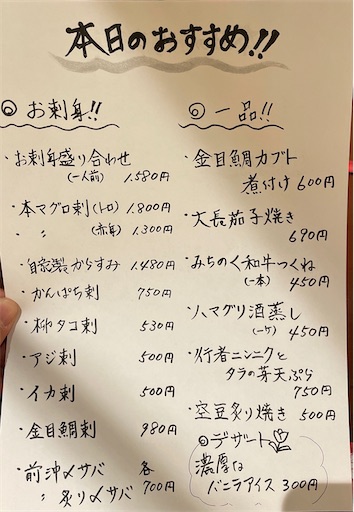 本日のおすすめ!!
◎お刺身!!
・お刺身盛り合わせ
(一人前) 1.580円
・本マグロ刺(トロ) 1.800円
・〃 (赤身) 1.300円
・自家製からすみ 1.480円
・かんぱち刺 750円
・柳タコ刺 530円
・アジ刺 500円
・イカ刺 500円
・金目鯛刺 980円
・前沖〆サバ 各
〃 炙り〆サバ 700円
◎一品!!
・金目鯛カブト
煮付け 600円
・大長茄子焼き
690円
・みちのく和牛つくね
(一本) 450円
・ハマグリ酒蒸し
(一ケ) 450円
・行者ニンニクと
タラの芽天ぷら
750円
・空豆炙り焼き 500円
◎デザート
濃厚な
バニラアイス 300円